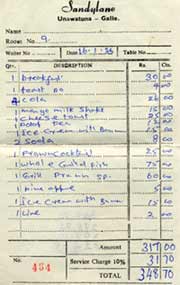 Sandylane
Unawatuna - Galle.
Name
Room No 9.
Waiter No Date 16/1/86 Table No
QTY. DESCRIPTION Rs. Cts.
1 breakfast 30 00
1 toast no
cola 24 00
1 mango milk shake 15 00
1 cheese toast 25 00
1 Ice cream with 15 00
2 Soda 8 00
1 Prown cocktail 25 00
1 whole Gulsd fish 75 00
1 Grill Prawn sp. 60 00
1 pine apple 5 00
1 Ice cream with 15 00
1 Lime 2 00
Amount 317 00
No. 434 Service Charge 10% 31 70
TOTAL 348 70